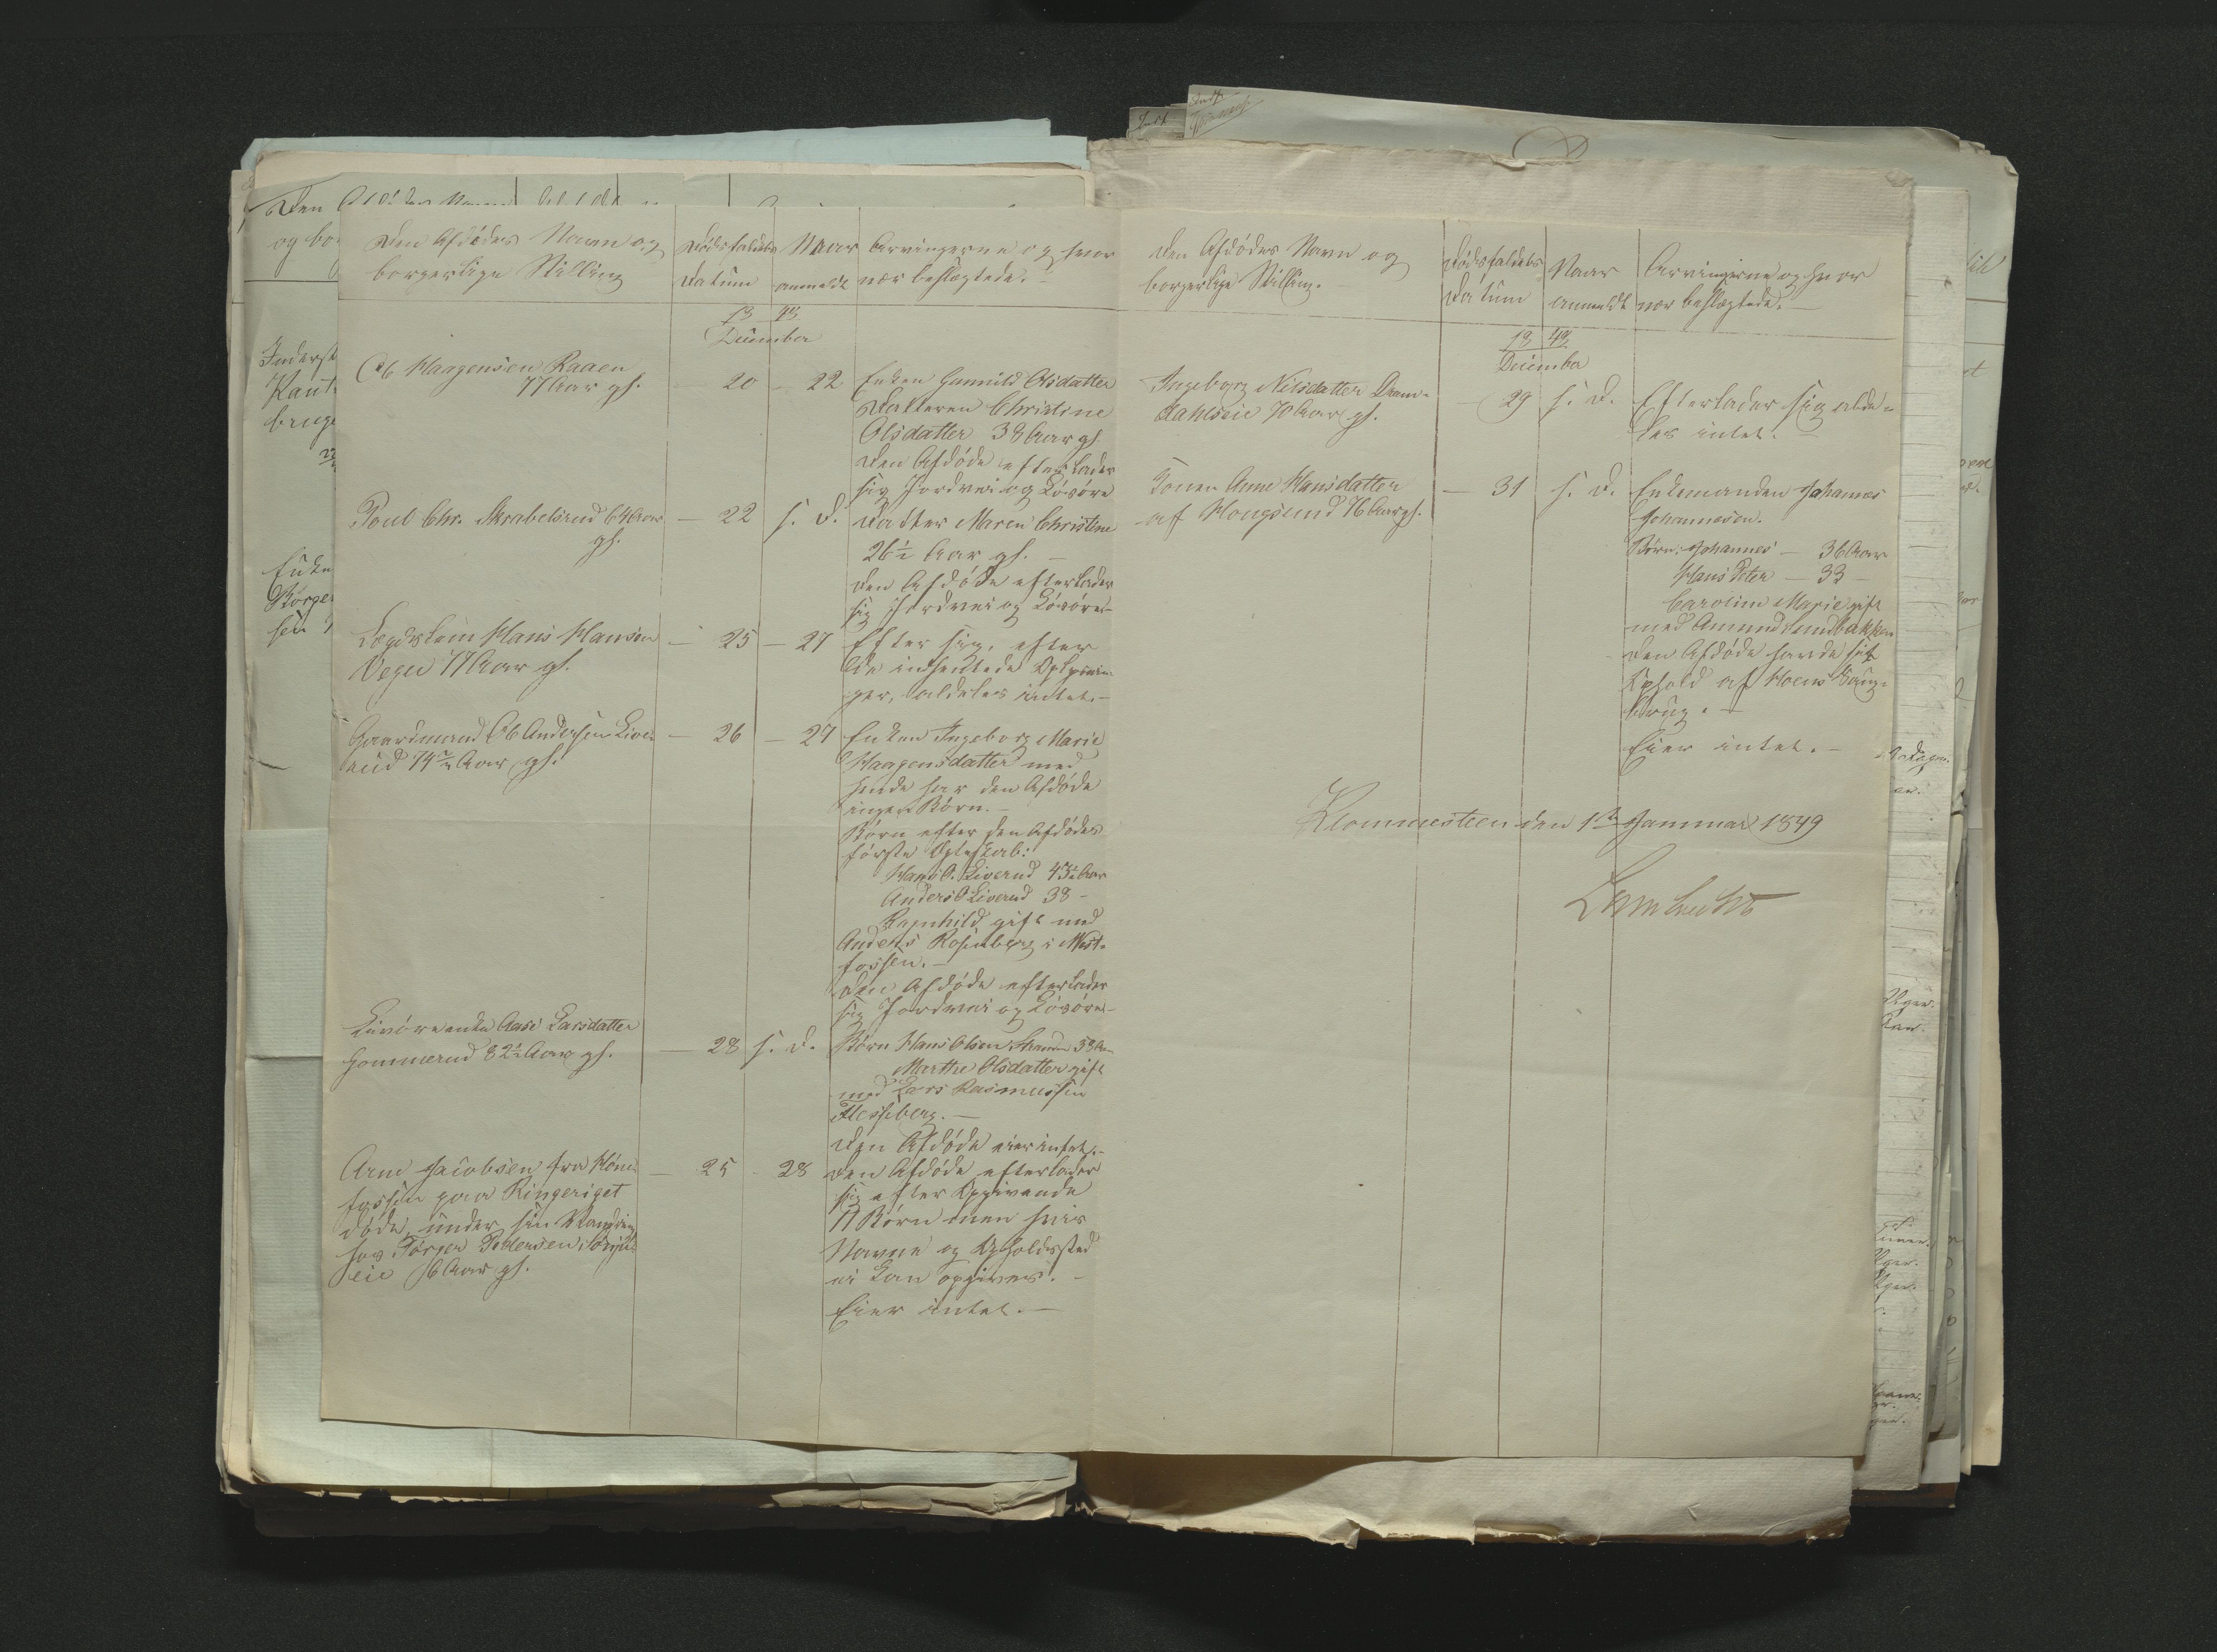 Den Afdödes Navn og
borgerlige Stilling
Dödsfaldets
Datum
Naar
anmeldt
Arvingerne og hvor
nær beslægtede.
18 48
December
Ole Haagensen Raaen
77 Aar gl.
20 - 22
Enken Gunnild Olsdatter
Datteren Christine
Olsdatter 38 Aar gl.
Den Afdöde efterlader
sig Jordvei og Lösöre
Poul Chr. Skrabelsrud 64 Aar
gl.
- 22 s. D.
Datter Maren Christine
26½ Aar gl. -
Den Afdöde efterlader
sig Jordvei og Lösöre -
Lægdslem Hans Hansen
Vego 77 Aar gl.
- 25 - 27
Efter sig, efter
de indhentede Oplysnin-
ger, aldeles intet. -
Gaardmand Ole Andersen Live-
rud 74 Aar gl.
- 26 - 27
Enken Ingeborg Marie
Haagensdatter med
hende har den Afdöde
ingen Börn. -
Börn efter den Afdödes
förste Ægteskab:
Hans O. Liverud Aar
Anders O. Liverud 38 -
Ragnhild gift med
Anders Rosenberg i Vest-
fossen. -
Den Afdöde efterlader
sig Jordvei og Lösöre -
Aase Larsdatter
Gommerud 82½ Aar gl.
- 28 s. D.
Börn Hans Olsen 38 Aar
Marthe Olsdatter gift
med Lars Rasmussen
Flesseberg. -
Den Afdöde eier intet. -
Arne Jacobsen fra Höne-
fossen paa Ringeriget
döde under sin Vandring
hos Törger Pedersen
eie Aar gl.
- 25 - 28
Den Afdöde efterlader
sig efter Opgivende
Börn men hvis
Navne og Opholdssted
ei kan opgives. -
Eier intet. -
Den Afdödes Navn og
borgerlige Stilling. -
Dödsfaldets
Datum
Naar
anmeldt
Arvingerne og hvor
nær beslægtede. -
18 48
December
Ingeborg Nilsdatter Dram-
dahlseie 70 Aar gl.
- 29 s. D.
Efterlader sig alde-
les intet. -
Konen Anne Hansdatter
af Hougsund 76 Aar gl.
- 31 s. D.
Enkemanden Johannes
Johannesen.
Börn: Johannes - 36 Aar
Hans Peter - 33 -
Caroline Marie gift
med Amund Sundbakken
Den Afdöde havde sit
Ophold af Hoens Saug-
brug. -
Eier intet. -
Klommesteen den 1ste Januar 1849
Lambrechts